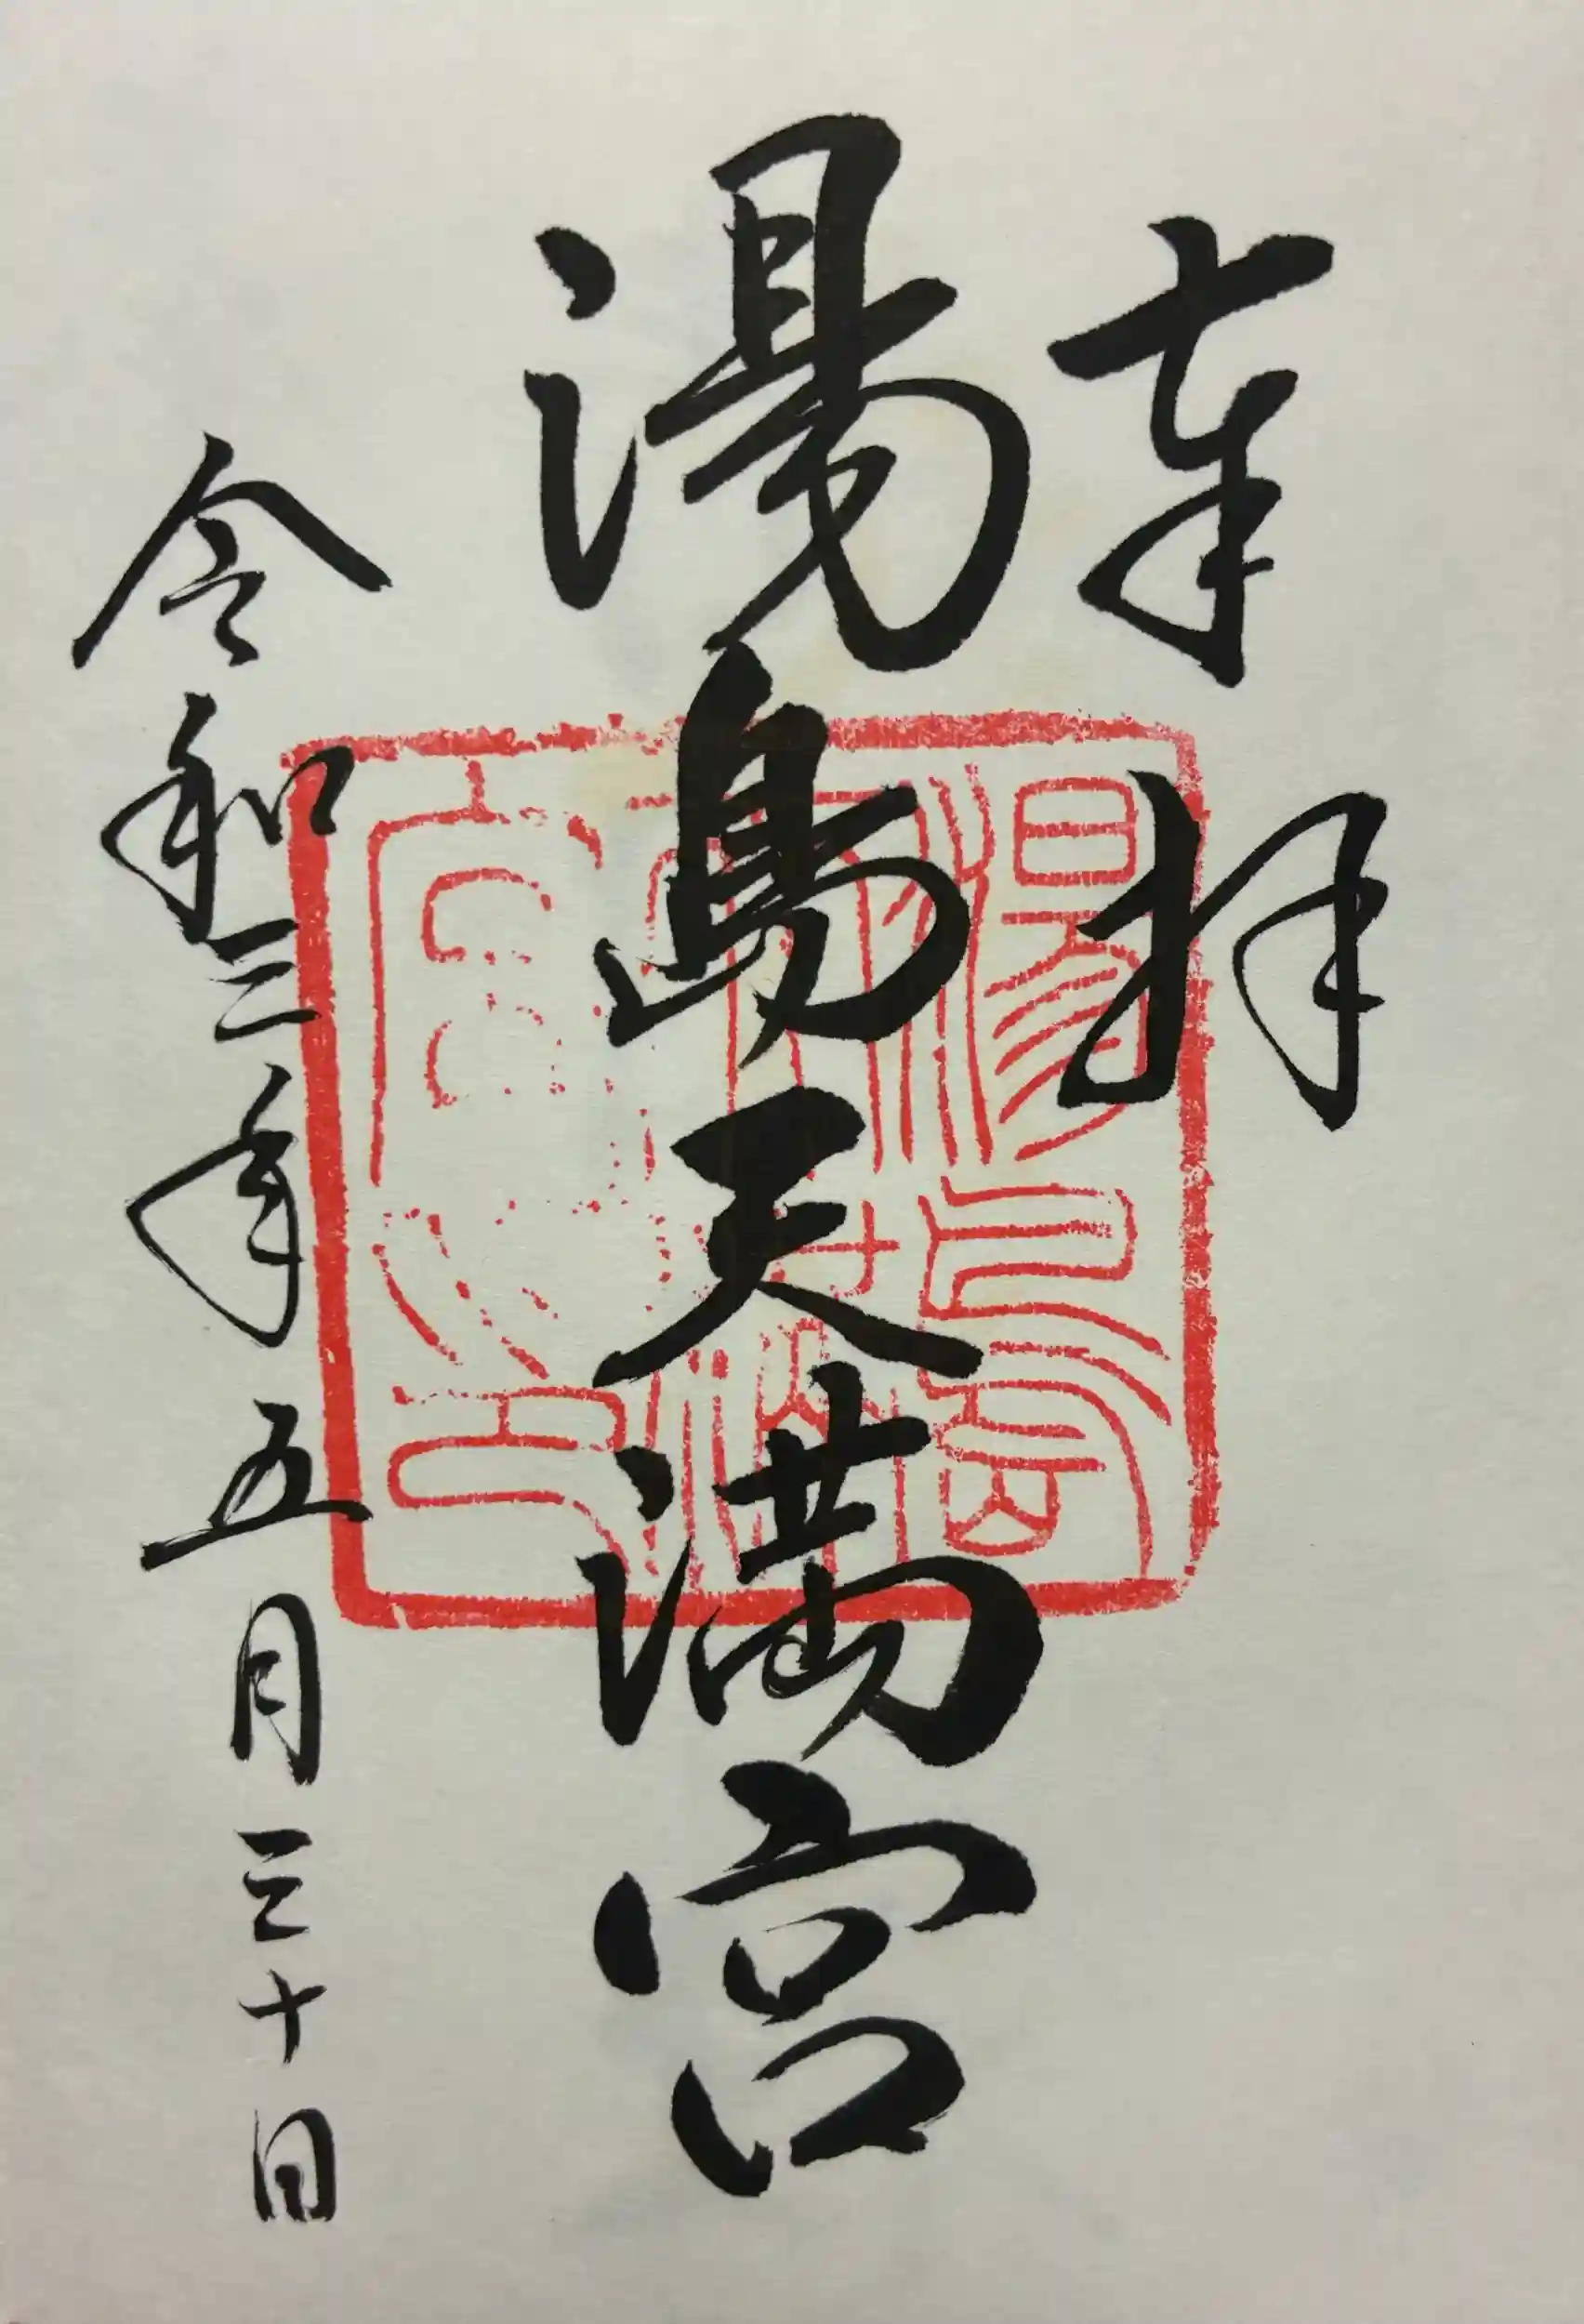 奉拝
湯島天満宮
令和三年五月三十日
湯島天満宮印